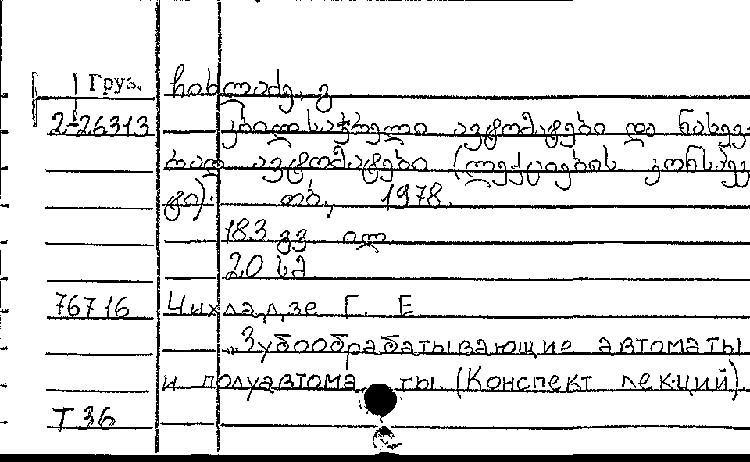 Груз. ჩიხლაძე, გ
2-26313 კბილსაჭრელი ავტომატები და ნახევ-
რად ავტომატები (ლექციების კონსპექ
ტი). თბ., 1978.
183 გვ ილ
20 სმ
76716 Чихладзе Г. Е
"Зубообрабатывающие автоматы
и полуавтоматы (Конспект лекций)
Т 36